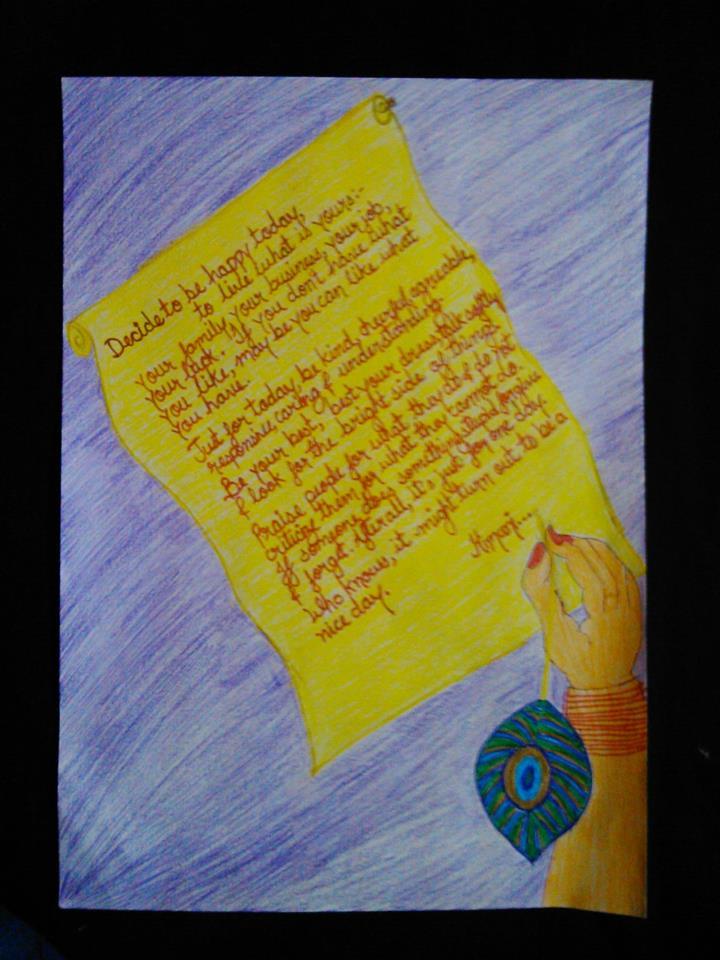 Decide to be happy today,
to live what is yours:-
your family, your business, your job,
your luck. If you don't have what
you like, may be you can like what
you have.
Just for today, be kind, cheerful, agreeable,
responsive caring & understanding.
Be your best, best your dress, talk softly
& look for the bright side of things
Praise people for what they do & do not
criticize them for what they cannot do.
If someone does something stupid forgive
& forget. Afterall, it's just for one day.
Who knows, it might turn out to be a
nice day.